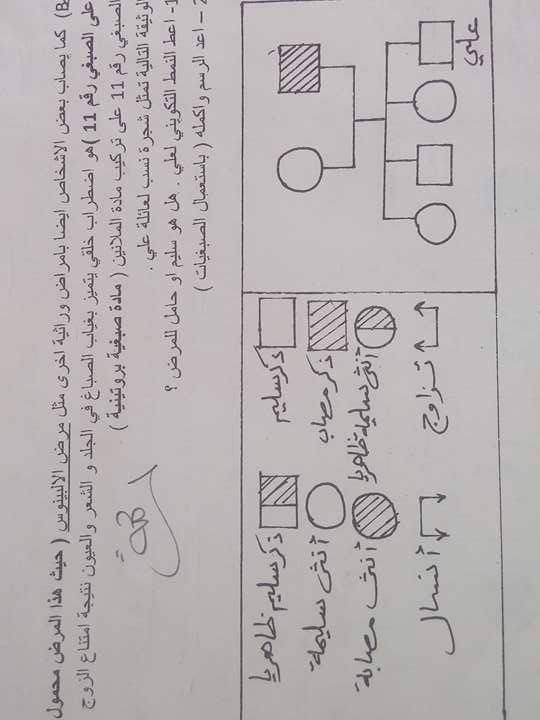 كما يصاب بعض الاشخاص ايضا بامراض وراثية اخرى مثل مرض الالبينوس ( حيث هذا المرض محمول
على الصبغي رقم 11 )هو اضطراب خلقي يتميز بغياب الصباغ في الجلد و الشعر والعيون نتيجة امتناع الزوج
الصبغي رقم 11 على تركيب مادة الملانين ( مادة صبغية بروتينية )
الوثيقة التالية تمثل شجرة نسب لعائلة علي .
1- اعط النمط التكويني لعلي . هل هو سليم او حامل للمرض ؟
2 – اعد الرسم واكمله ( باستعمال الصبغيات )
علي
ذكر سليم
ذكر سليم ظاهريا
ذكر مصاب
أنثى سليمة
أنثى سليمة ظاهريا
أنثى مصابة
تزاوج
أنسال